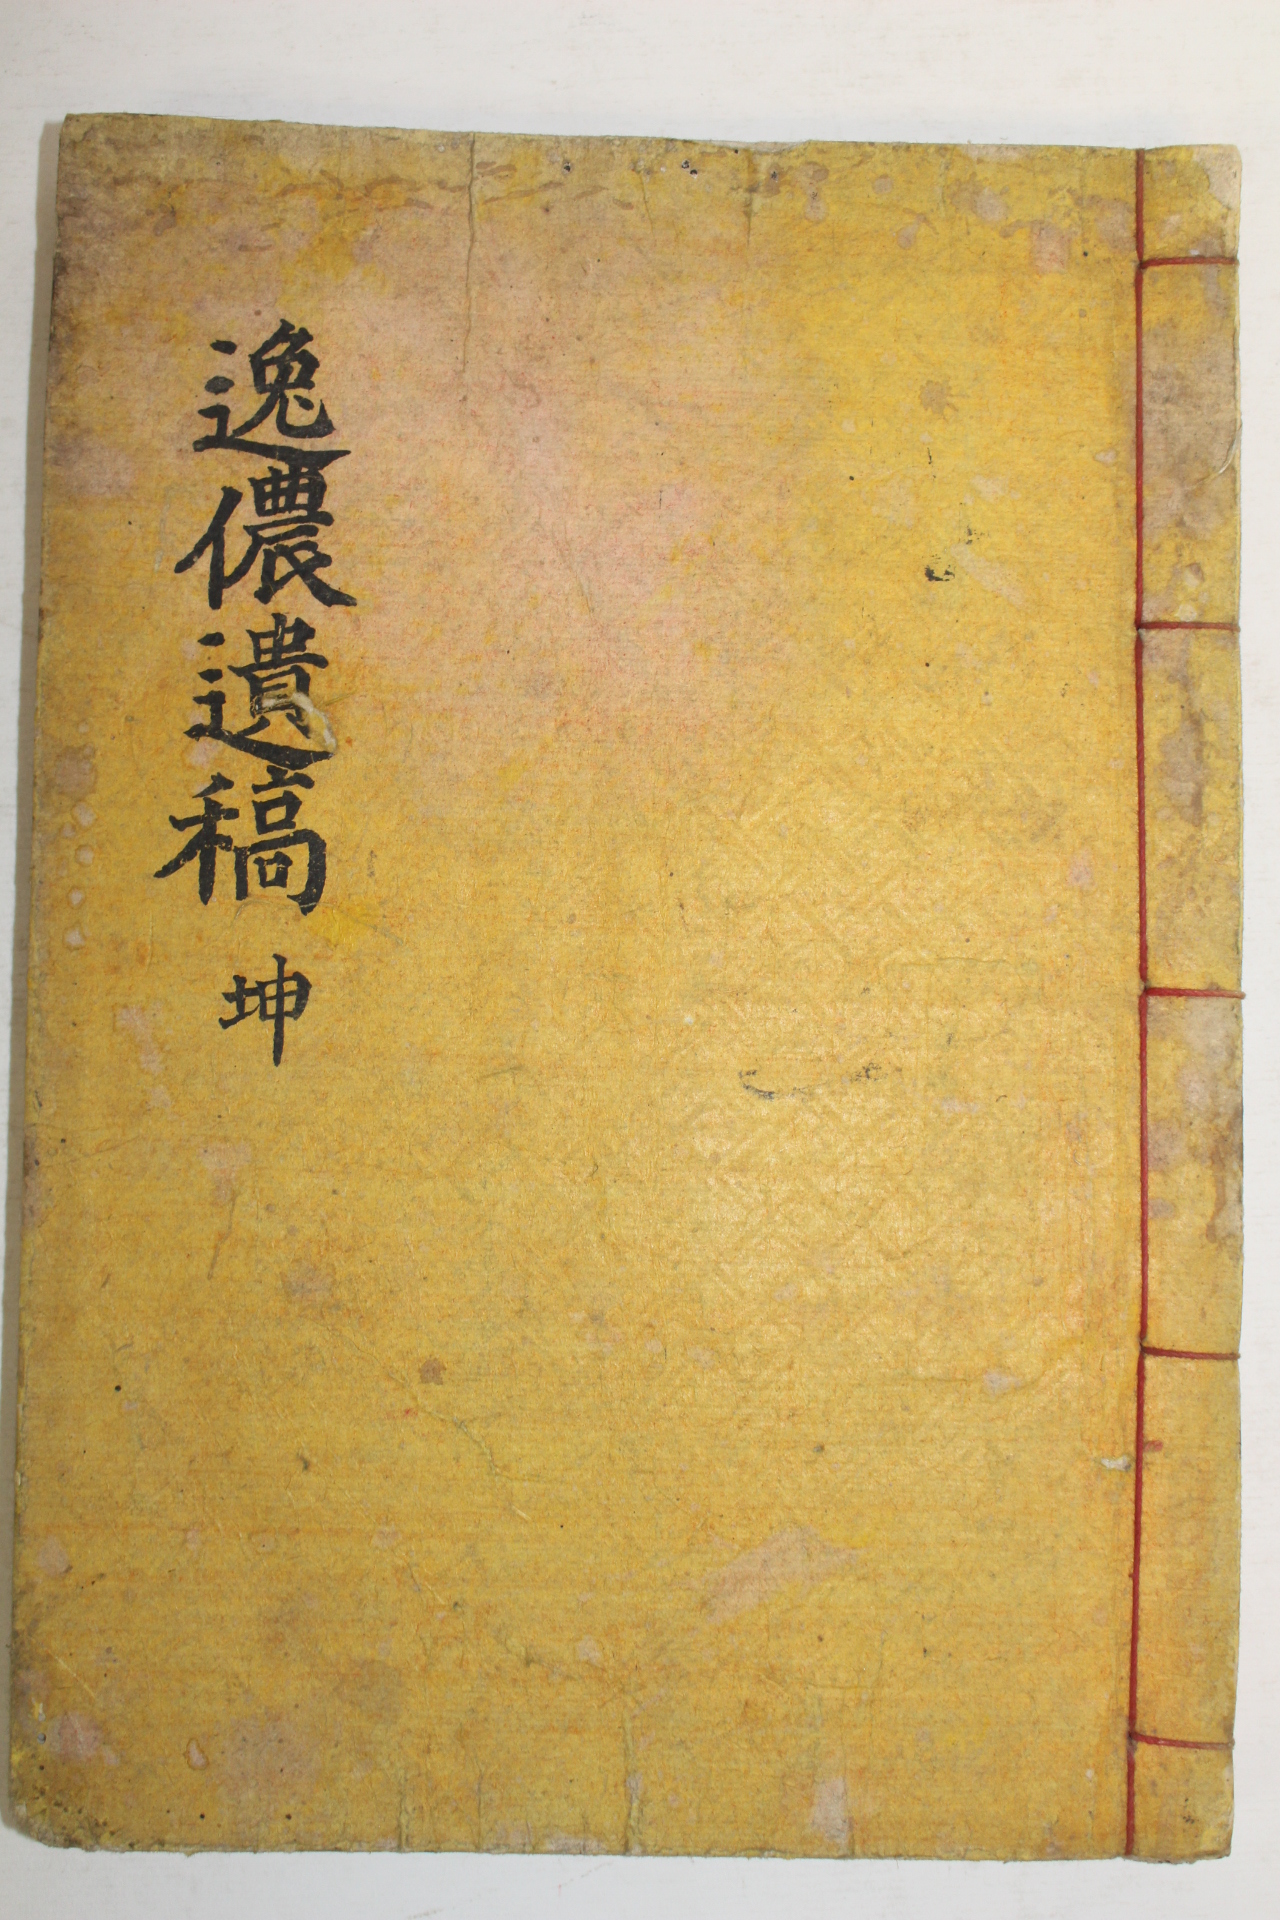 逸儂遺稿 坤